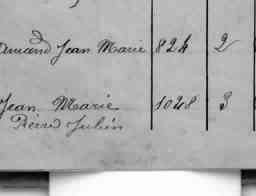 Armand Jean Marie 824 2
Jean Marie 1048 3
Pierre Julien